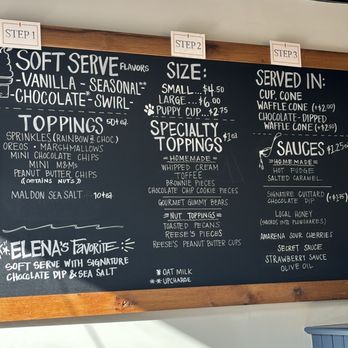 STEP 1
SOFT SERVE FLAVORS
-VANILLA - SEASONAL*-
CHOCOLATE - SWIRL-
TOPPINGS 50¢ea
SPRINKLES (RAINBOW & CHOC)
OREOS - MARSHMALLOWS
MINI CHOCOLATE CHIPS
MINI M&Ms
PEANUT BUTTER CHIPS
(CONTAINS NUTS)
MALDON SEA SALT 10¢ea
*ELENA's Favorite:
SOFT SERVE WITH SIGNATURE
CHOCOLATE DIP & SEA SALT
STEP 2
SIZE:
SMALL...$4.50
LARGE...$6.00
PUPPY CUP...$2.75
SPECIALTY
TOPPINGS $1ea
-HOMEMADE-
WHIPPED CREAM
TOFFEE
BROWNIE PIECES
CHOCOLATE CHIP COOKIE PIECES
GOURMET GUMMY BEARS
-NUT TOPPINGS-
TOASTED PECANS
REESE'S PIECES
REESE'S PEANUT BUTTER CUPS
*OAT MILK
*UPCHARGE
STEP 3
SERVED IN:
CUP, CONE
WAFFLE CONE (+$2.00)
CHOCOLATE-DIPPED
WAFFLE CONE (+$2.50)
SAUCES $1.25ea
-HOMEMADE-
HOT FUDGE
SALTED CARAMEL
SIGNATURE CUSTARD
CHOCOLATE DIP
LOCAL HONEY
AMARENA SOUR CHERRIES
SECRET SAUCE
STRAWBERRY SAUCE
OLIVE OIL